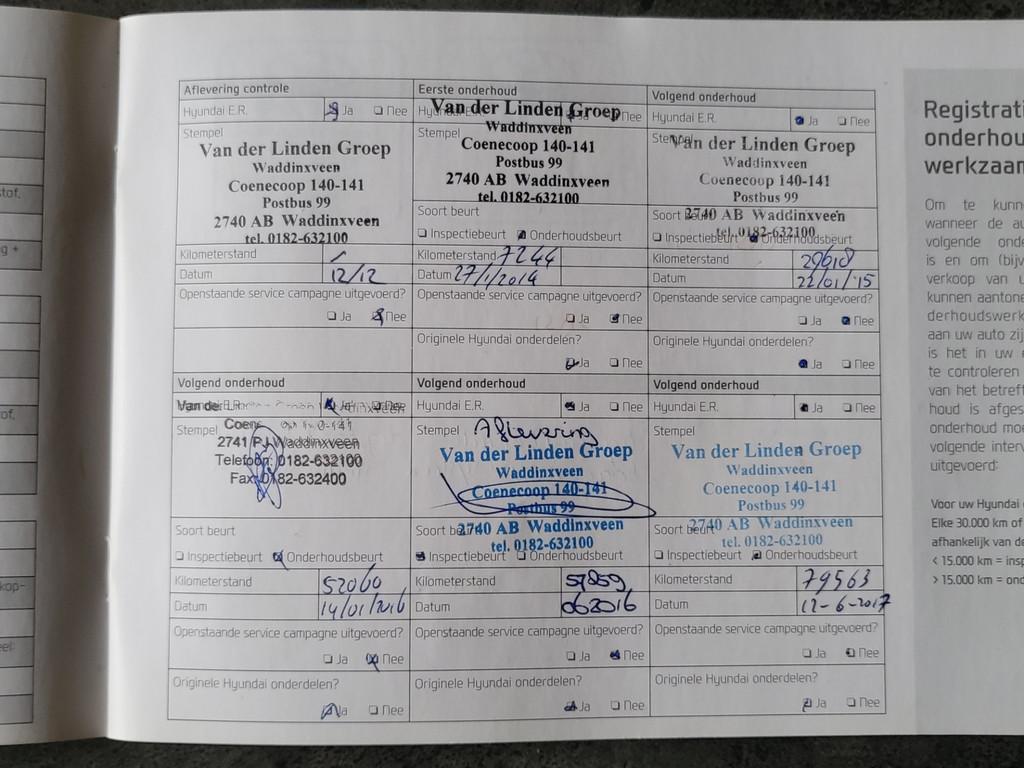 Aflevering controle
Hyundai E.R. Ja Nee
Stempel
Van der Linden Groep
Waddinxveen
Coenecoop 140-141
Postbus 99
2740 AB Waddinxveen
tel. 0182-632100
Kilometerstand
Datum 12/12
Openstaande service campagne uitgevoerd?
Ja Nee
Eerste onderhoud
Van der Linden Groep
Stempel
Waddinxveen
Coenecoop 140-141
Postbus 99
2740 AB Waddinxveen
tel. 0182-632100
Soort beurt
Inspectiebeurt Onderhoudsbeurt
Kilometerstand 7244
Datum 27/1/2014
Openstaande service campagne uitgevoerd?
Ja Nee
Originele Hyundai onderdelen?
Ja Nee
Volgend onderhoud
Hyundai E.R. Ja Nee
Stempel
Van der Linden Groep
Waddinxveen
Coenecoop 140-141
Postbus 99
Soort beurt
2740 AB Waddinxveen
tel. 0182-632100
Inspectiebeurt Onderhoudsbeurt
Kilometerstand
Datum 22/01/'15
Openstaande service campagne uitgevoerd?
Ja Nee
Originele Hyundai onderdelen?
Ja Nee
Volgend onderhoud
Van der
Stempel
2741 PJ Waddinxveen
Telefoon: 0182-632100
Fax: 0182-632400
Soort beurt
Inspectiebeurt Onderhoudsbeurt
Kilometerstand 52060
Datum 14/01/2016
Openstaande service campagne uitgevoerd?
Ja Nee
Originele Hyundai onderdelen?
Ja Nee
Volgend onderhoud
Hyundai E.R. Ja Nee
Stempel Aflevering
Van der Linden Groep
Waddinxveen
Coenecoop 140-141
Postbus 99
Soort beurt
2740 AB Waddinxveen
tel. 0182-632100
Inspectiebeurt Onderhoudsbeurt
Kilometerstand 57859
Datum 062016
Openstaande service campagne uitgevoerd?
Ja Nee
Originele Hyundai onderdelen?
Ja Nee
Volgend onderhoud
Hyundai E.R. Ja Nee
Stempel
Van der Linden Groep
Waddinxveen
Coenecoop 140-141
Postbus 99
Soort beurt
2740 AB Waddinxveen
tel. 0182-632100
Inspectiebeurt Onderhoudsbeurt
Kilometerstand 79563
Datum 12-6-2017
Openstaande service campagne uitgevoerd?
Ja Nee
Originele Hyundai onderdelen?
Ja Nee
Registrati
onderhou
werkzaam
Om te kunn
wanneer de au
volgende onde
is en om (bijv
verkoop van u
kunnen aantone
derhoudswerk
aan uw auto zij
is het in uw
te controleren
van het betreff
houd is afges
onderhoud moe
volgende interv
uitgevoerd:
Voor uw Hyundai
Elke 30.000 km of
afhankelijk van de
< 15.000 km = insp
> 15.000 km = ond